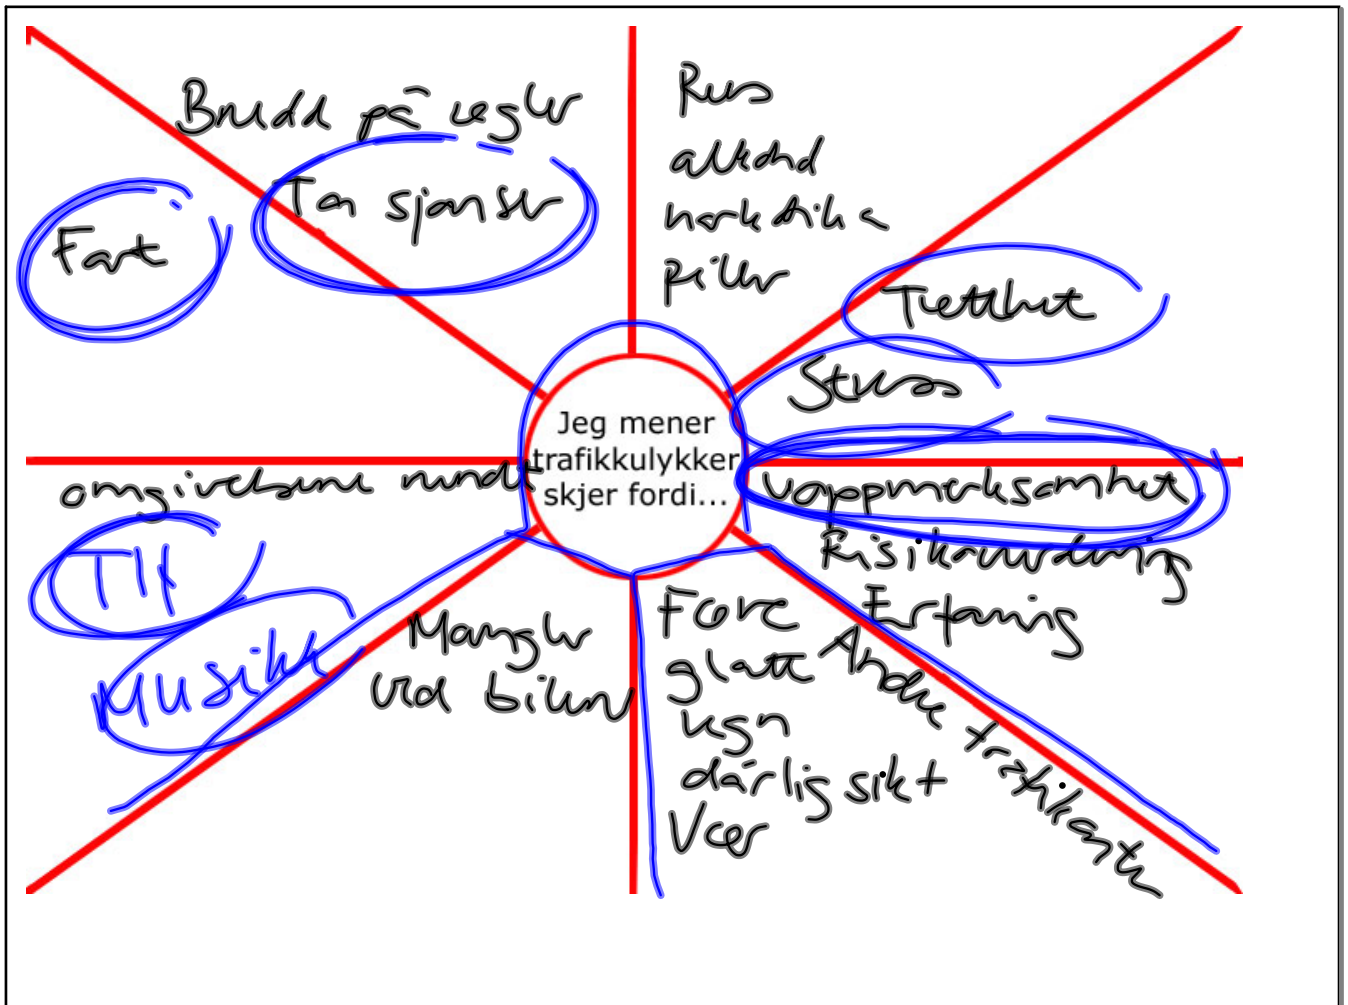 Brudd på regler
Ta sjanser
Fart
Rus
alkohol
narkotika
piller
Trøtthet
Stress
Jeg mener
trafikkulykker
skjer fordi...
omgivelsene rundt
Tlf
MUSikk
uoppmerksomhet
Risikovurdering
Erfaring
Andre trafikanter
Mangler
ved bilen
Føre
glatt
regn
dårlig sikt
Vær